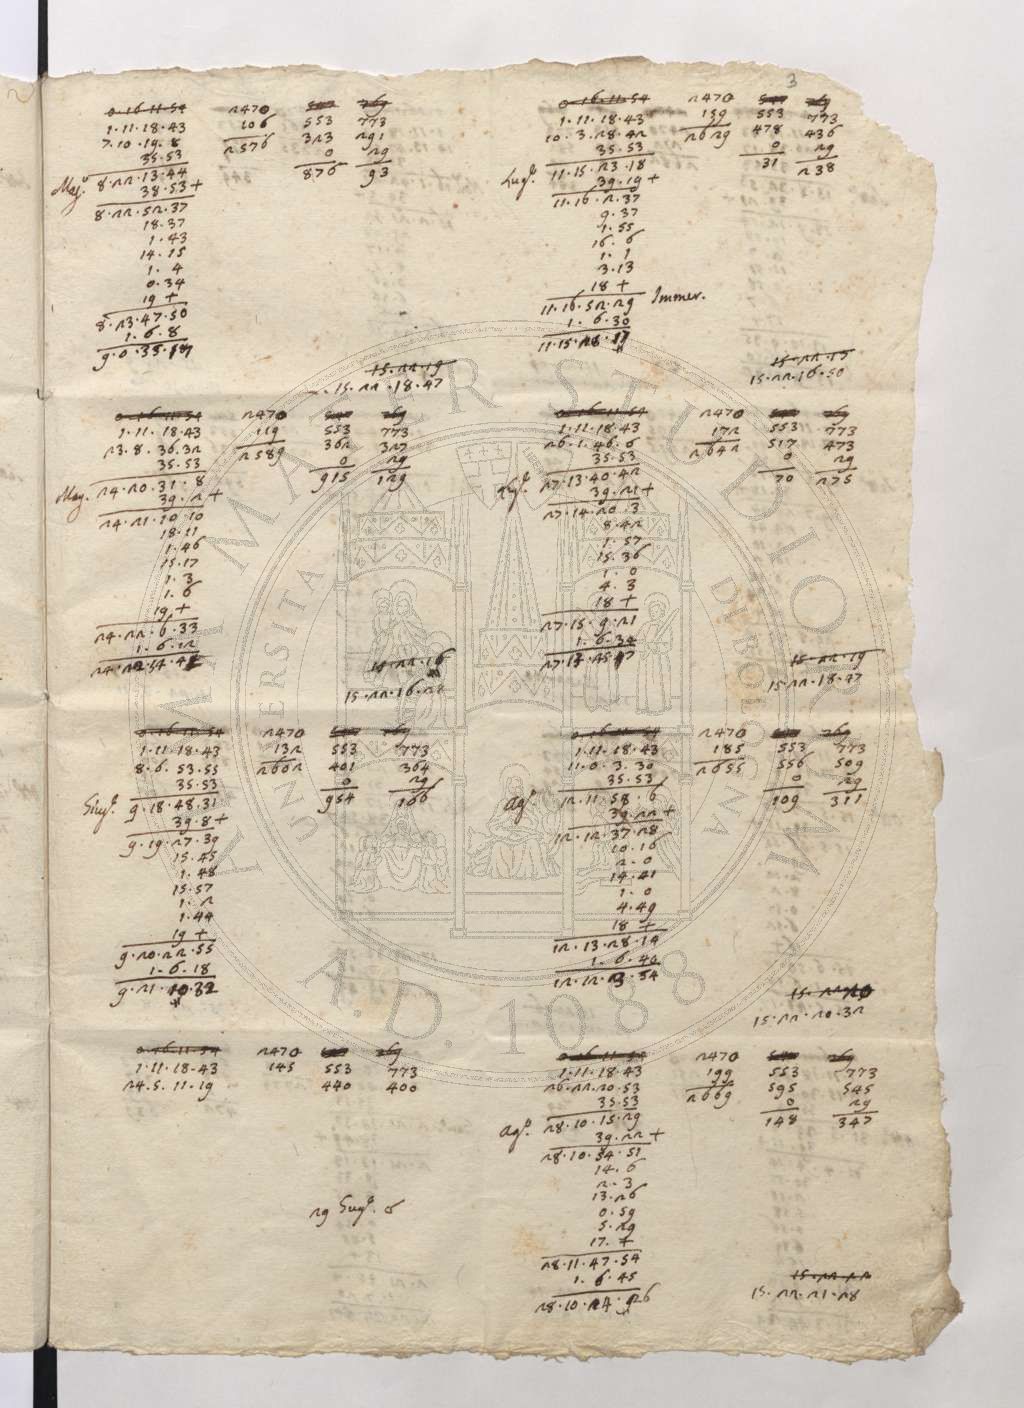 3
0.16.11.54 2470 542 769
1.11.18.43 106 553 773
7.10.19.8 2576 323 291
35.53 0 29
Mag.º 8.22.13.44 876 93
38.53+
8.22.52.37
18.37
1.43
14.15
1.4
0.34
19+
8.23.47.50
1.6.8
15.22.19
15.22.18.47
0.16.11.54 2470 542 769
1.11.18.43 119 553 773
23.8.36.32 2589 362 327
35.53 0 29
Mag. 24.20.31.8 915 129
39.2+
24.21.10.10
18.11
1.46
15.17
1.3
1.6
19+
24.22.6.33
1.6.12
15.22.16
15.22.16.28
0.16.11.54 2470 542 769
1.11.18.43 132 553 773
8.6.53.55 2602 401 364
35.53 0 29
Giug.º 9.18.48.31 954 166
39.8+
9.19.27.39
15.45
1.48
15.57
1.2
1.44
19+
9.20.22.55
1.6.18
9.21.10.32
0.16.11.54 2470 542 769
1.11.18.43 145 553 773
24.5.11.19 440 400
29 Giug.º
0.16.11.54 2470 542 769
1.11.18.43 159 553 773
10.3.28.42 2629 478 436
35.53 0 29
Lug.º 11.15.23.18 31 238
39.19+
11.16.2.37
9.37
1.55
16.6
1.1
3.13
18+
11.16.52.29 Immer.
1.6.30
15.22.15
15.22.16.50
0.16.11.54 2470 542 769
1.11.18.43 172 553 773
26.1.46.6 2642 517 473
35.53 0 29
Lug.º 27.13.40.42 70 275
39.21+
27.14.20.3
8.42
1.57
15.36
1.0
4.3
18+
27.15.9.21
1.6.34
15.22.19
15.22.18.47
0.16.11.54 2470 542 769
1.11.18.43 185 553 773
11.0.3.30 2655 556 509
35.53 0 29
Ag.º 12.11.58.6 109 311
39.22+
12.12.37.28
10.16
2.0
14.41
1.0
4.49
18+
12.13.28.14
1.6.40
15.22.20
15.22.20.32
0.16.11.54 2470 542 769
1.11.18.43 199 553 773
26.22.20.53 2669 595 545
35.53 0 29
Ag.º 28.10.15.29 148 347
39.22+
28.10.54.51
14.6
2.3
13.26
0.59
5.29
17.+
28.11.47.54
1.6.45
15.22.22
15.22.21.28
ALMA MATER STUDIORUM
UNIVERSITA DI BOLOGNA
A.D. 1088